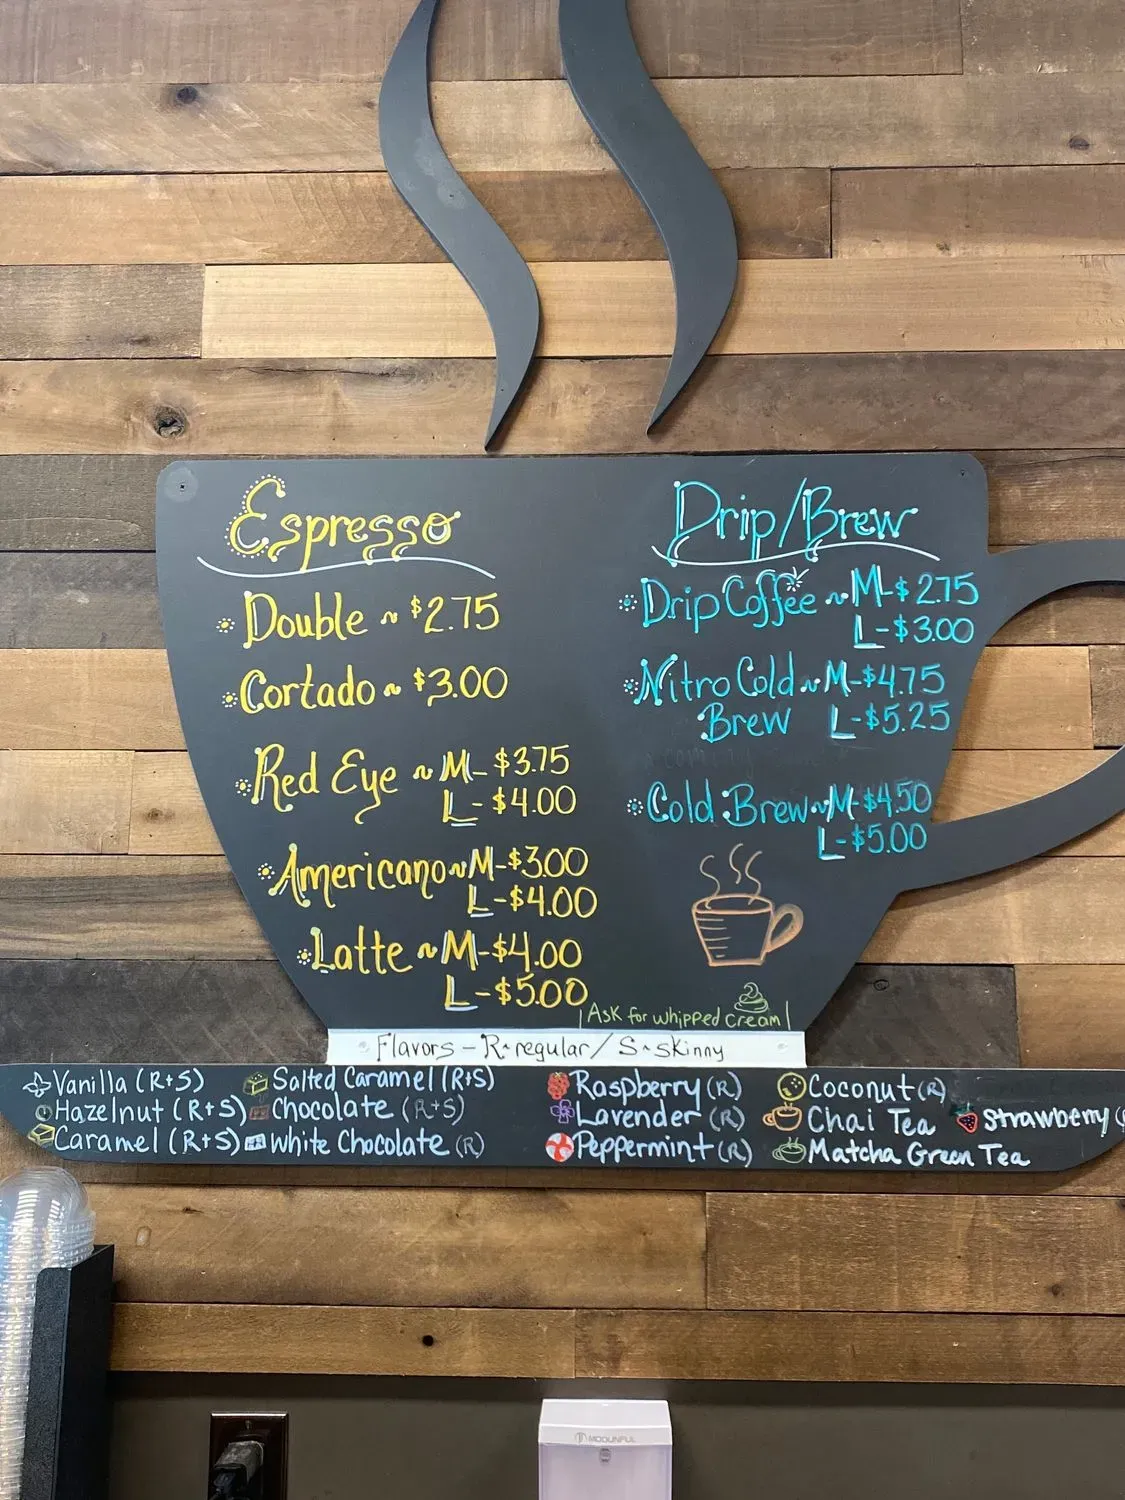 Espresso
Double ~ $2.75
Cortado ~ $3.00
Red Eye ~ M- $3.75
L- $4.00
Americano ~ M-$3.00
L-$4.00
Latte ~ M-$4.00
L-$5.00
Drip/Brew
Drip Coffee ~ M-$2.75
L-$3.00
Nitro Cold ~ M-$4.75
Brew L-$5.25
Cold Brew ~ M-$4.50
L-$5.00
Ask for whipped cream
Flavors - R-regular/S-skinny
Vanilla (R+S)
Hazelnut (R+S)
Caramel (R+S)
Salted Caramel (R+S)
Chocolate (R+S)
White Chocolate (R)
Raspberry (R)
Lavender (R)
Peppermint (R)
Coconut (R)
Chai Tea
Matcha Green Tea
Strawberry
MODUNFUL